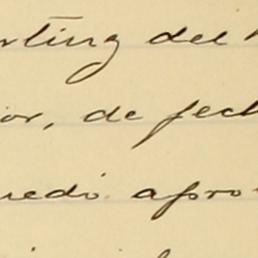 rting del
ior, de fech
uedó apro